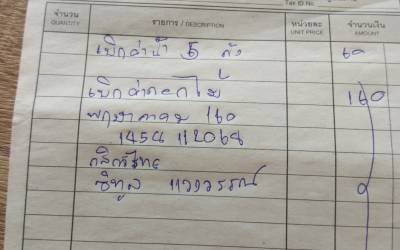 Tax ID No.
จำนวน QUANTITY รายการ / DESCRIPTION หน่วยละ UNIT PRICE จำนวนเงิน AMOUNT
เบิกค่าน้ำ 5 ถัง 60
เบิกค่าดอกไม้ 160
พฤษภาคม 160
1458 112068
กสิกรไทย
แววววรรณ์